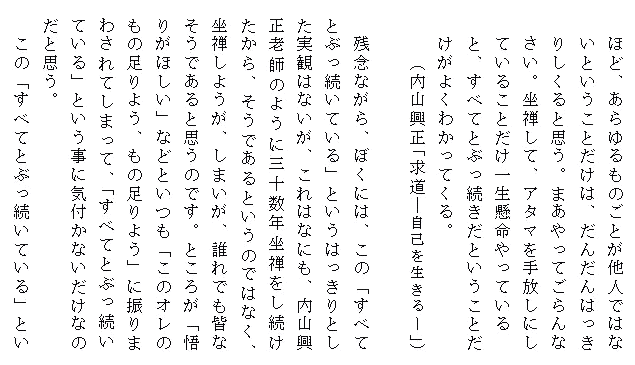 ほど、あらゆるものごとが他人ではな
いということだけは、だんだんはっき
りしくると思う。まあやってごらんな
さい。坐禅して、アタマを手放しにし
ていることだけ一生懸命やっている
と、すべてとぶっ続きだということだ
けがよくわかってくる。
（内山興正「求道―自己を生きる―」）
残念ながら、ぼくには、この「すべて
とぶっ続いている」というはっきりとし
た実観はないが、これはなにも、内山興
正老師のように三十数年坐禅をし続け
たから、そうであるというのではなく、
坐禅しようが、しまいが、誰れでも皆な
そうであると思うのです。ところが「悟
りがほしい」などといつも「このオレの
もの足りよう、もの足りよう」に振りま
わされてしまって、「すべてとぶっ続い
ている」という事に気付かないだけなの
だと思う。
この「すべてとぶっ続いている」とい